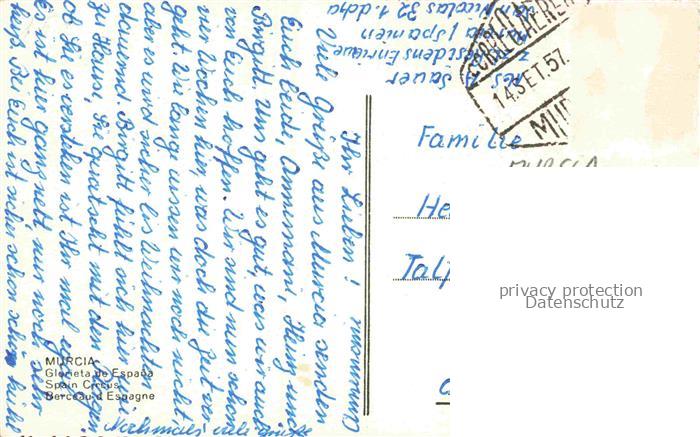 Ihr Lieben!
Viele Grüße aus Murcia senden
Euch beide, Annemarie, Heinz und
Birgitt. Uns geht es gut, was wir auch
von Euch hoffen. Wir sind nun schon
vier Wochen hier, was doch die Zeit ver-
geht. Wie lang wissen wir noch nicht
aber es wird sicher bis Weihnachten
dauernd. Birgitt fühlt sich hier wie
zu Hause, Sie quatscht mit den
ob Sie es verstehen ist Ihr mal egal.
Es ist hier ganz nett, nur noch sehr
heiß. Bei Euch ist sicher schon schön kühl
Nochmals viele Grüße
MURCIA
Glorieta de España
Spain Circus
Berceau d'Espagne
Abs. A. Sauer
z. Residens Enrique
Murcia / Spanien
San Nicolas 32 1. dcha
14 SET. 57
MUR
MURCIA
Familie
He
Talf
privacy protection
Datenschutz